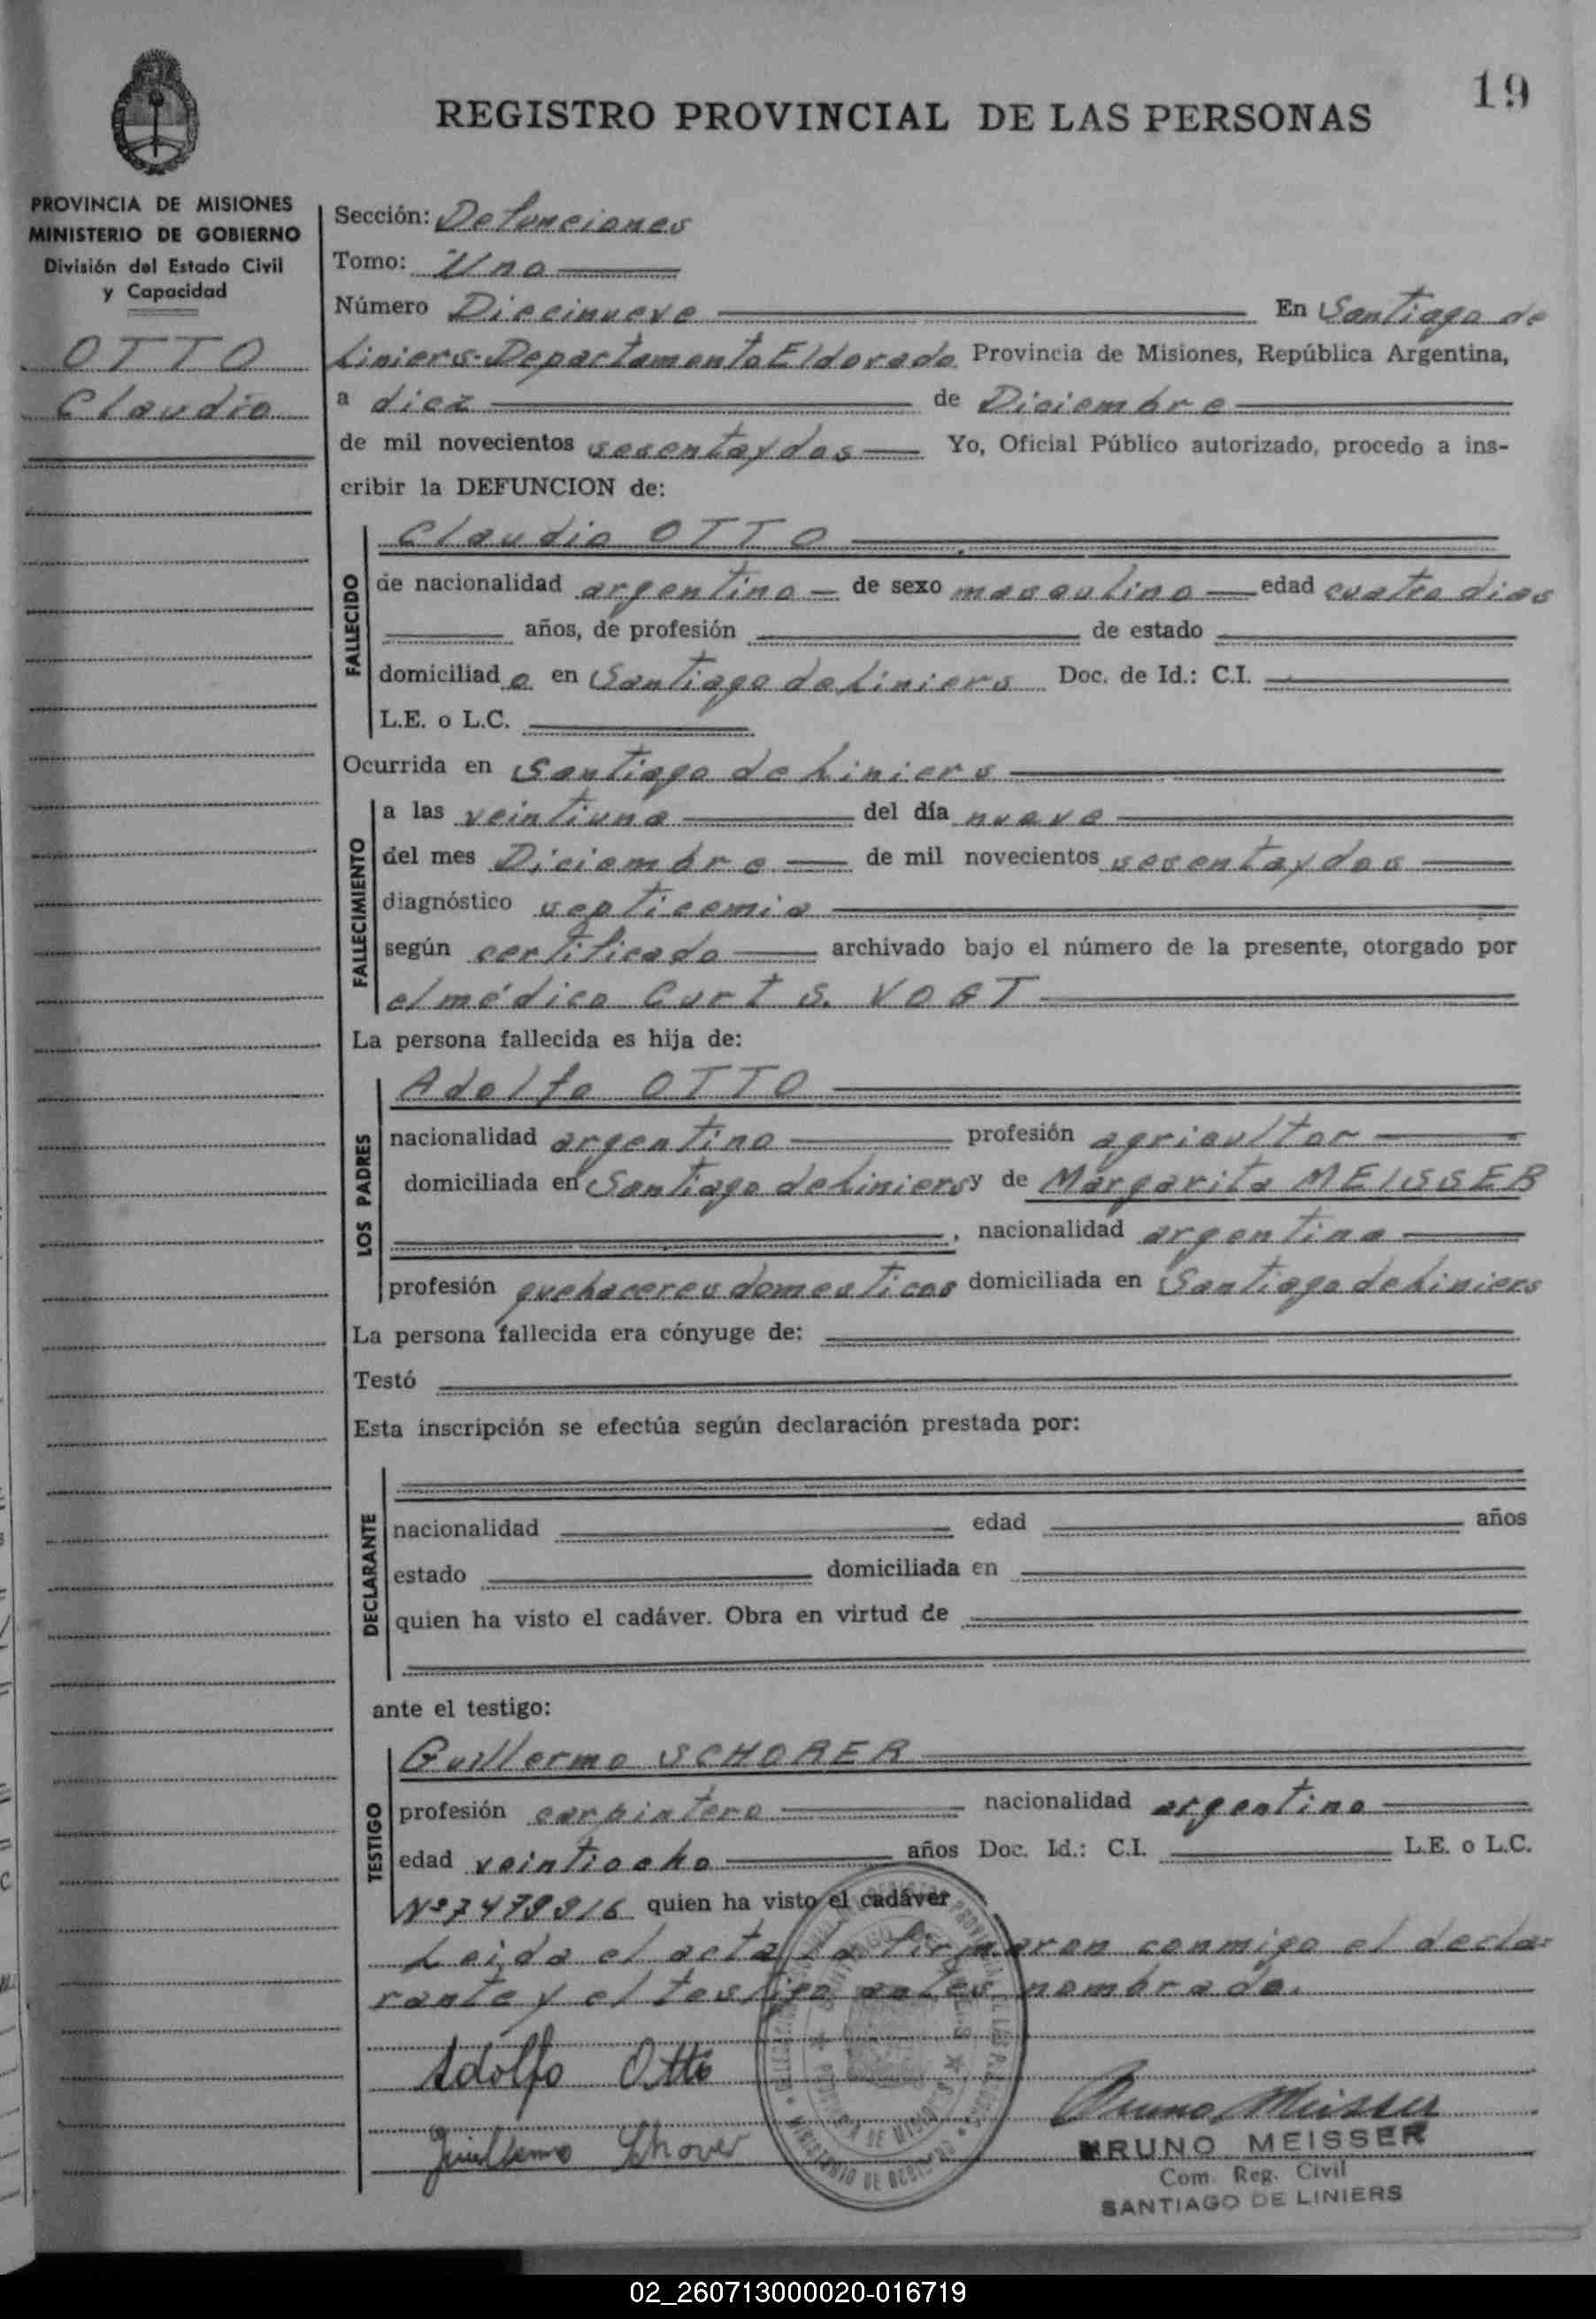 19
REGISTRO PROVINCIAL DE LAS PERSONAS
PROVINCIA DE MISIONES
MINISTERIO DE GOBIERNO
División del Estado Civil
y Capacidad
OTTO
Claudio
Sección: Defunciones
Tomo: Uno
Número Diecinueve En Santiago de
Liniers-Departamento Eldorado Provincia de Misiones, República Argentina,
a diez de Diciembre
de mil novecientos sesenta y dos Yo, Oficial Público autorizado, procedo a ins-
cribir la DEFUNCION de:
FALLECIDO
Claudio OTTO
de nacionalidad argentino de sexo masculino edad cuatro dias
años, de profesión de estado
domiciliad o en Santiago de Liniers Doc. de Id.: C.I.
L.E. o L.C.
Ocurrida en Santiago de Liniers
FALLECIMIENTO
a las veintiuna del día nueve
del mes Diciembre de mil novecientos sesenta y dos
diagnóstico septicemia
según certificado archivado bajo el número de la presente, otorgado por
el médico Curt S. VOGT
La persona fallecida es hija de:
LOS PADRES
Adolfo OTTO
nacionalidad argentino profesión agricultor
domiciliada en Santiago de Liniers y de Margarita MEISSER
, nacionalidad argentina
profesión quehaceres domesticos domiciliada en Santiago de Liniers
La persona fallecida era cónyuge de:
Testó
Esta inscripción se efectúa según declaración prestada por:
DECLARANTE
nacionalidad edad años
estado domiciliada en
quien ha visto el cadáver. Obra en virtud de
ante el testigo:
TESTIGO
Guillermo SCHORER
profesión carpintero nacionalidad argentino
edad veintiocho años Doc. Id.: C.I. L.E. o L.C.
quien ha visto el cadáver
Leida el acta la firmaron conmigo el decla-
rante y el testigo antes nombrado.
Adolfo Otto
Guillermo Schorer
Bruno Meisser
BRUNO MEISSER
Com. Reg. Civil
SANTIAGO DE LINIERS
02_260713000020-016719